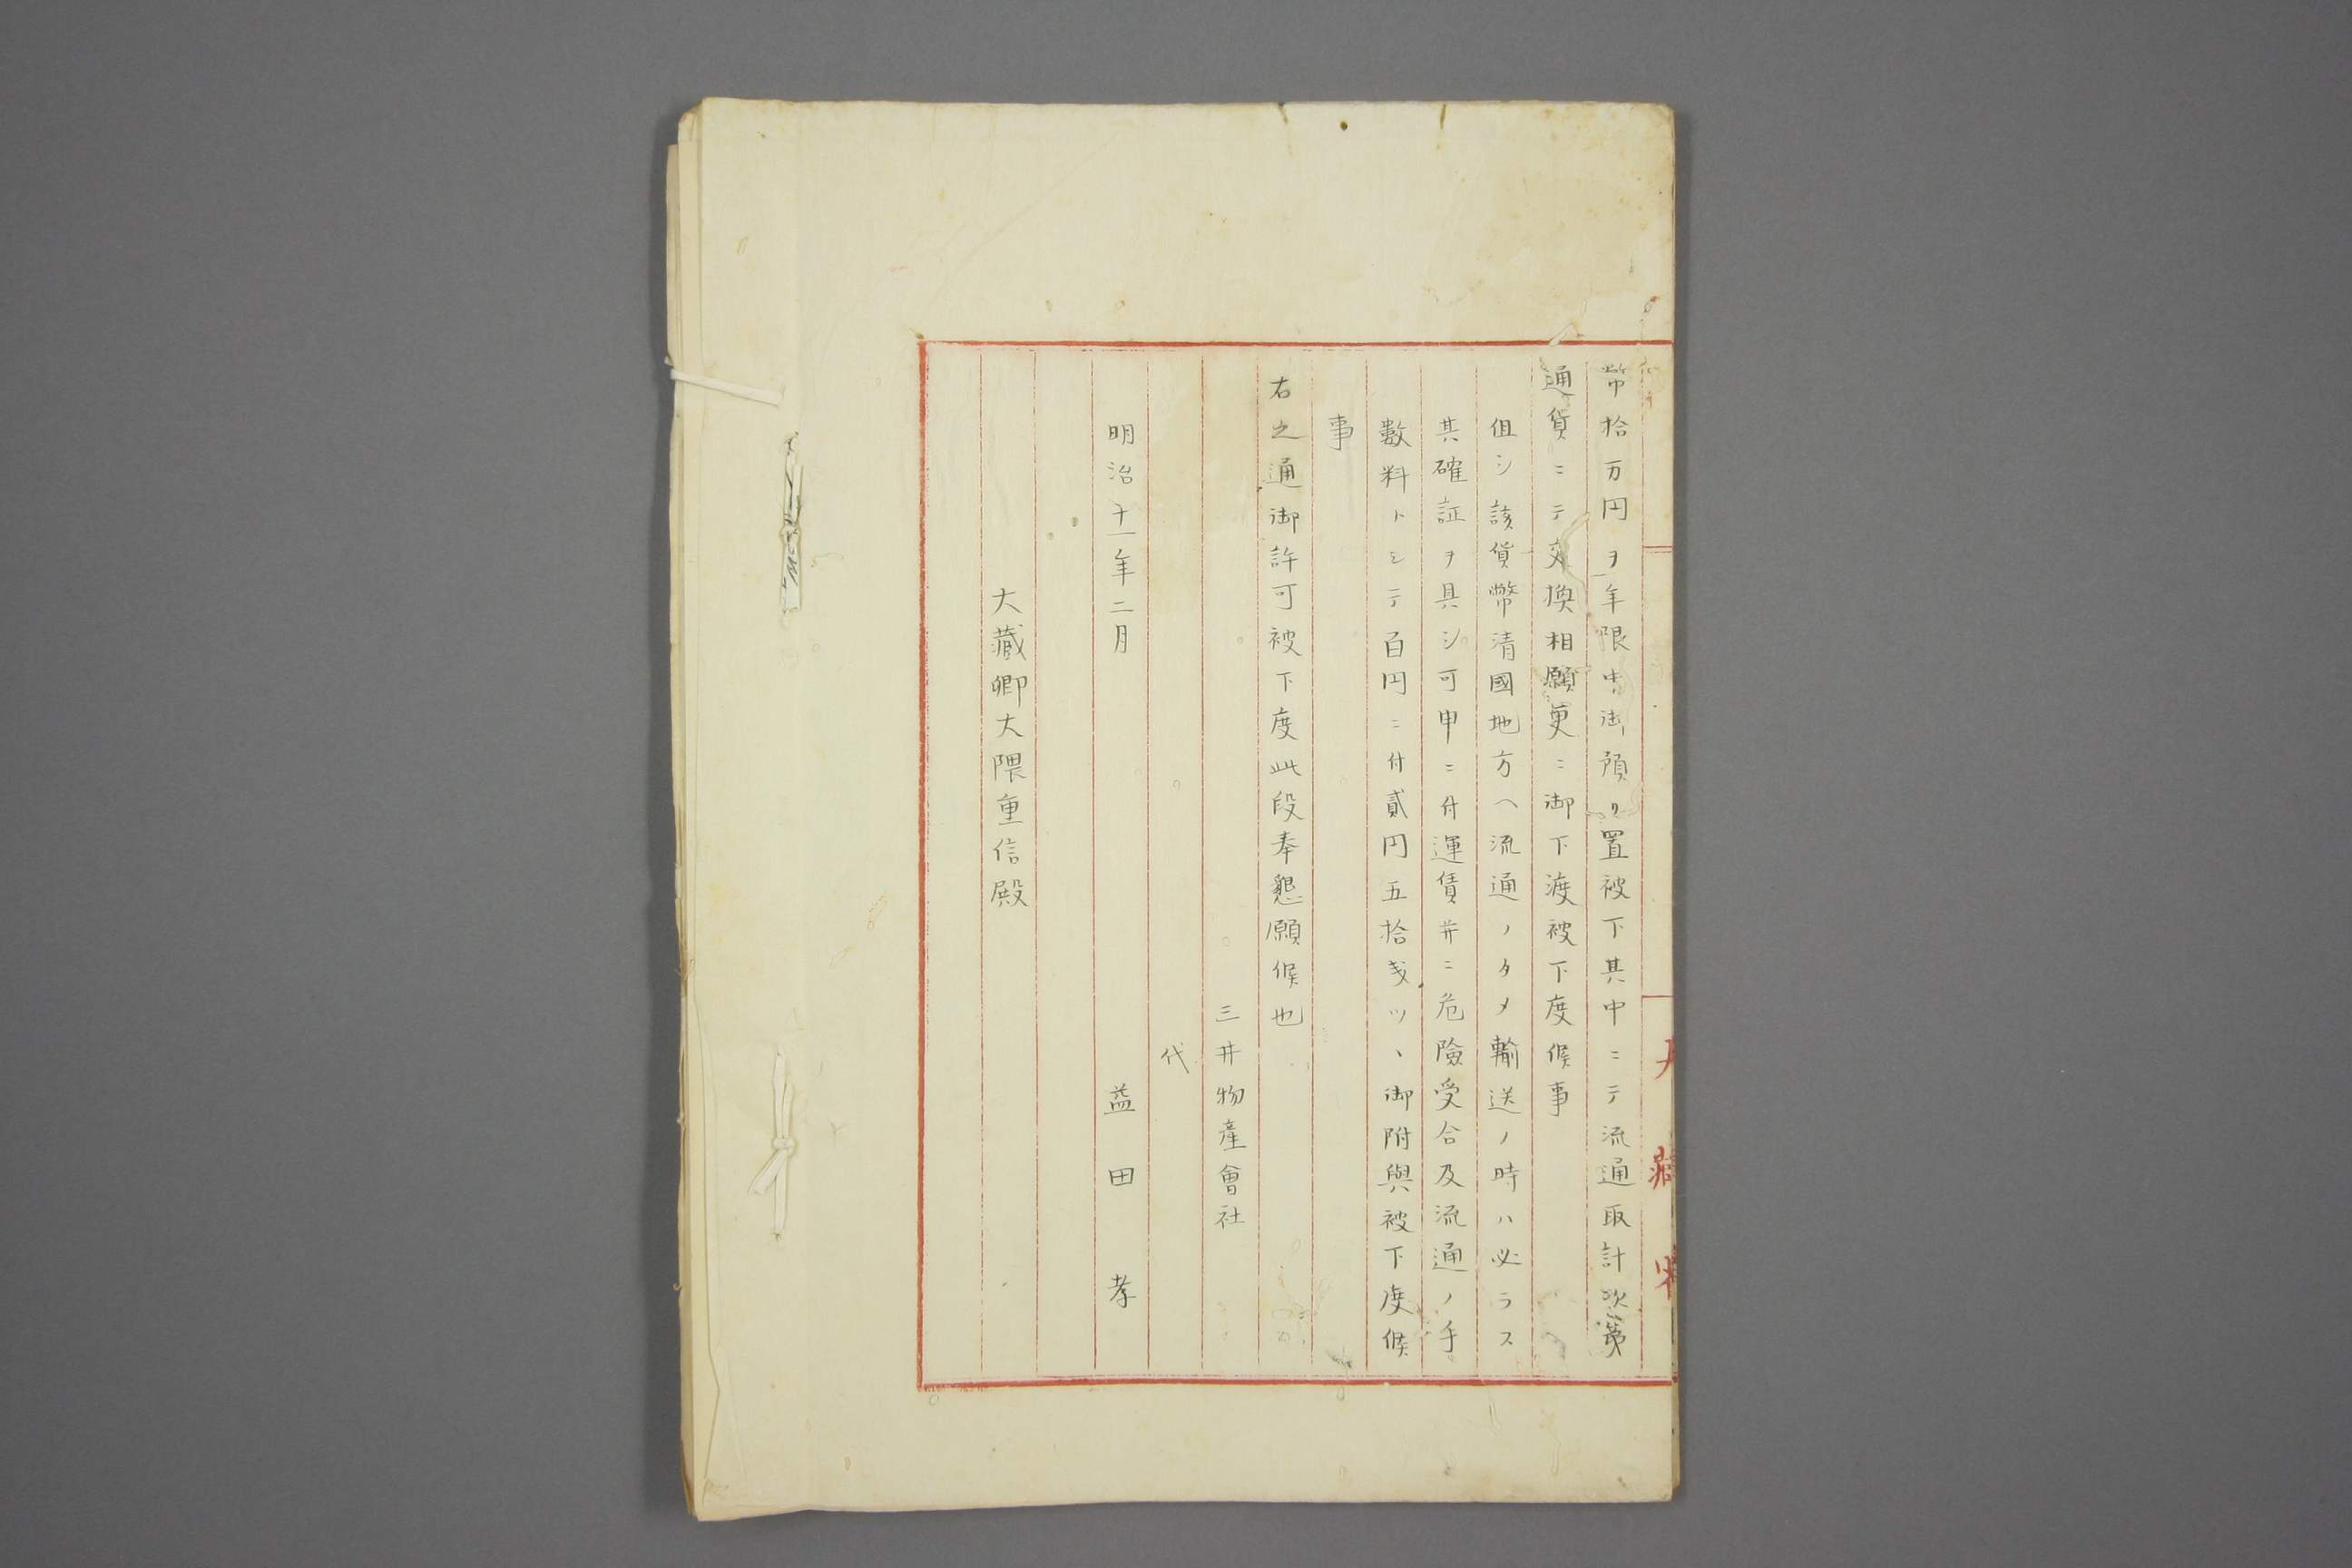 幣拾万円ヲ年限中御預リ置被下其中ニテ流通取計次第
通貨ニテ交換相願更ニ御下渡被下度候事
但シ該貨幣清國地方ヘ流通ノタメ輸送ノ時ハ必ラス
其確証ヲ具シ可申ニ付運賃并ニ危險受合及流通ノ手
數料トシテ百円ニ付貳円五拾戋ツヽ御附與被下度候
事
右之通御許可被下度此段奉懇願候也
三井物産會社
代
明治十一年二月 益田孝
大藏卿大隈重信殿